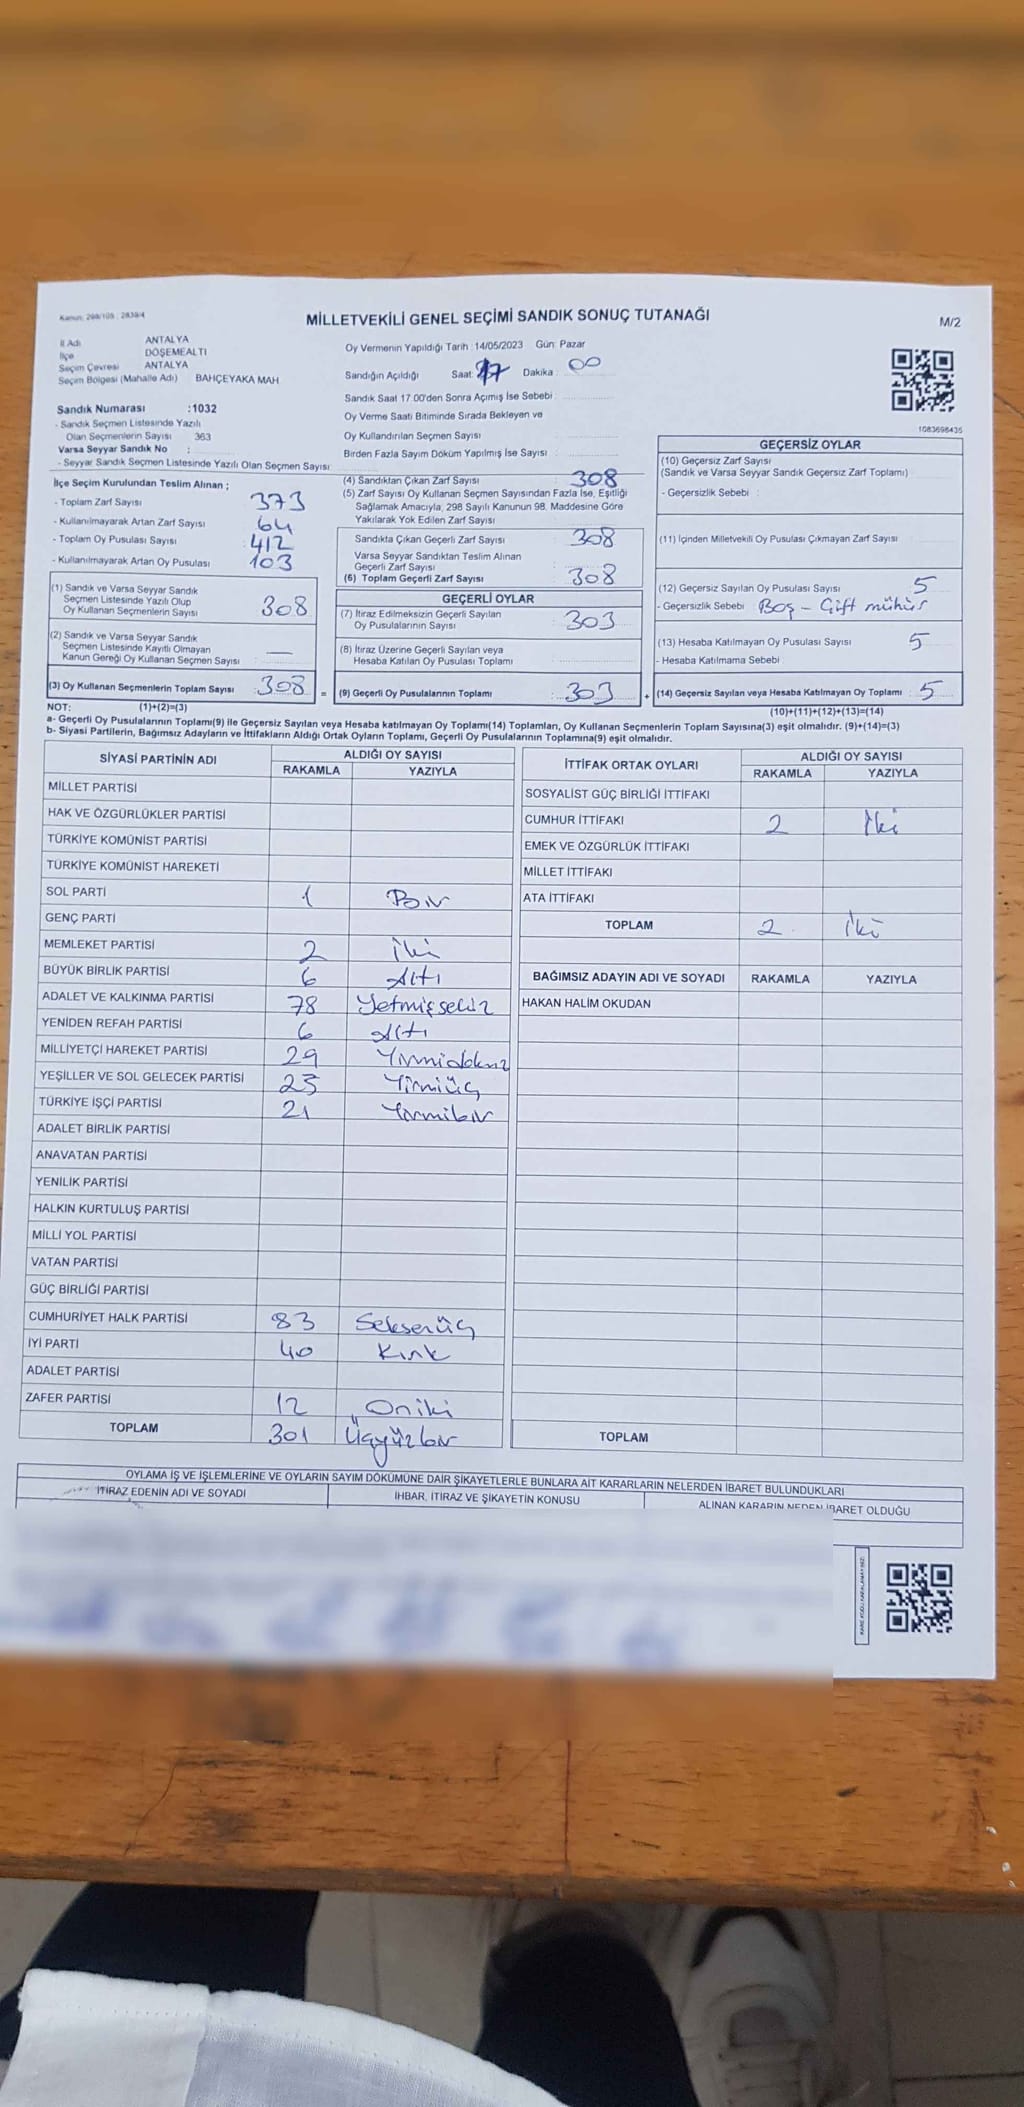 Kanun: 298/105 : 2839/4
MİLLETVEKİLİ GENEL SEÇİMİ SANDIK SONUÇ TUTANAĞI
M/2
İl Adı ANTALYA
İlçe DÖŞEMEALTI
Seçim Çevresi ANTALYA
Seçim Bölgesi (Mahalle Adı) BAHÇEYAKA MAH
Sandık Numarası :1032
- Sandık Seçmen Listesinde Yazılı
Olan Seçmenlerin Sayısı 363
Varsa Seyyar Sandık No :
- Seyyar Sandık Seçmen Listesinde Yazılı Olan Seçmen Sayısı:
Oy Vermenin Yapıldığı Tarih :14/05/2023 Gün: Pazar
Sandığın Açıldığı Saat: 17 Dakika : 00
Sandık Saat 17.00'den Sonra Açımış İse Sebebi :
Oy Verme Saati Bitiminde Sırada Bekleyen ve
Oy Kullandırılan Seçmen Sayısı
Birden Fazla Sayım Döküm Yapılmış İse Sayısı :
1083698435
İlçe Seçim Kurulundan Teslim Alınan ;
- Toplam Zarf Sayısı 373
- Kullanılmayarak Artan Zarf Sayısı 64
- Toplam Oy Pusulası Sayısı 412
- Kullanılmayarak Artan Oy Pusulası 103
(1) Sandık ve Varsa Seyyar Sandık
Seçmen Listesinde Yazılı Olup
Oy Kullanan Seçmenlerin Sayısı 308
(2) Sandık ve Varsa Seyyar Sandık
Seçmen Listesinde Kayıtlı Olmayan
Kanun Gereği Oy Kullanan Seçmen Sayısı : —
(3) Oy Kullanan Seçmenlerin Toplam Sayısı : 308 =
(4) Sandıktan Çıkan Zarf Sayısı 308
(5) Zarf Sayısı Oy Kullanan Seçmen Sayısından Fazla İse, Eşitliği
Sağlamak Amacıyla, 298 Sayılı Kanunun 98. Maddesine Göre
Yakılarak Yok Edilen Zarf Sayısı
Sandıkta Çıkan Geçerli Zarf Sayısı 308
Varsa Seyyar Sandıktan Teslim Alınan
Geçerli Zarf Sayısı
(6) Toplam Geçerli Zarf Sayısı 308
GEÇERLİ OYLAR
(7) İtiraz Edilmeksizin Geçerli Sayılan
Oy Pusulalarının Sayısı 303
(8) İtiraz Üzerine Geçerli Sayılan veya
Hesaba Katılan Oy Pusulası Toplamı
(9) Geçerli Oy Pusulalarının Toplamı : 303 +
GEÇERSİZ OYLAR
(10) Geçersiz Zarf Sayısı
(Sandık ve Varsa Seyyar Sandık Geçersiz Zarf Toplamı)
- Geçersizlik Sebebi :
(11) İçinden Milletvekili Oy Pusulası Çıkmayan Zarf Sayısı
(12) Geçersiz Sayılan Oy Pusulası Sayısı 5
- Geçersizlik Sebebi Boş - Çift mühür
(13) Hesaba Katılmayan Oy Pusulası Sayısı 5
- Hesaba Katılmama Sebebi
(14) Geçersiz Sayılan veya Hesaba Katılmayan Oy Toplamı : 5
NOT: (1)+(2)=(3)
(10)+(11)+(12)+(13)=(14)
a- Geçerli Oy Pusulalarının Toplamı(9) ile Geçersiz Sayılan veya Hesaba katılmayan Oy Toplamı(14) Toplamları, Oy Kullanan Seçmenlerin Toplam Sayısına(3) eşit olmalıdır. (9)+(14)=(3)
b- Siyasi Partilerin, Bağımsız Adayların ve İttifakların Aldığı Ortak Oyların Toplamı, Geçerli Oy Pusulalarının Toplamına(9) eşit olmalıdır.
SİYASİ PARTİNİN ADI ALDIĞI OY SAYISI
RAKAMLA YAZIYLA
MİLLET PARTİSİ
HAK VE ÖZGÜRLÜKLER PARTİSİ
TÜRKİYE KOMÜNİST PARTİSİ
TÜRKİYE KOMÜNİST HAREKETİ
SOL PARTİ 1 Bir
GENÇ PARTİ
MEMLEKET PARTİSİ 2 İki
BÜYÜK BİRLİK PARTİSİ 6 Altı
ADALET VE KALKINMA PARTİSİ 78 Yetmişsekiz
YENİDEN REFAH PARTİSİ 6 Altı
MİLLİYETÇİ HAREKET PARTİSİ 29 Yirmidokuz
YEŞİLLER VE SOL GELECEK PARTİSİ 23 Yirmiüç
TÜRKİYE İŞÇİ PARTİSİ 21 Yirmibir
ADALET BİRLİK PARTİSİ
ANAVATAN PARTİSİ
YENİLİK PARTİSİ
HALKIN KURTULUŞ PARTİSİ
MİLLİ YOL PARTİSİ
VATAN PARTİSİ
GÜÇ BİRLİĞİ PARTİSİ
CUMHURİYET HALK PARTİSİ 83 Seksenüç
İYİ PARTİ 40 Kırk
ADALET PARTİSİ
ZAFER PARTİSİ 12 Oniki
TOPLAM 301 Üçyüzbir
İTTİFAK ORTAK OYLARI ALDIĞI OY SAYISI
RAKAMLA YAZIYLA
SOSYALİST GÜÇ BİRLİĞİ İTTİFAKI
CUMHUR İTTİFAKI 2 İki
EMEK VE ÖZGÜRLÜK İTTİFAKI
MİLLET İTTİFAKI
ATA İTTİFAKI
TOPLAM 2 İki
BAĞIMSIZ ADAYIN ADI VE SOYADI RAKAMLA YAZIYLA
HAKAN HALİM OKUDAN
TOPLAM
OYLAMA İŞ VE İŞLEMLERİNE VE OYLARIN SAYIM DÖKÜMÜNE DAİR ŞİKAYETLERLE BUNLARA AİT KARARLARIN NELERDEN İBARET BULUNDUKLARI
İTİRAZ EDENİN ADI VE SOYADI İHBAR, İTİRAZ VE ŞİKAYETİN KONUSU ALINAN KARARIN NEDEN İBARET OLDUĞU